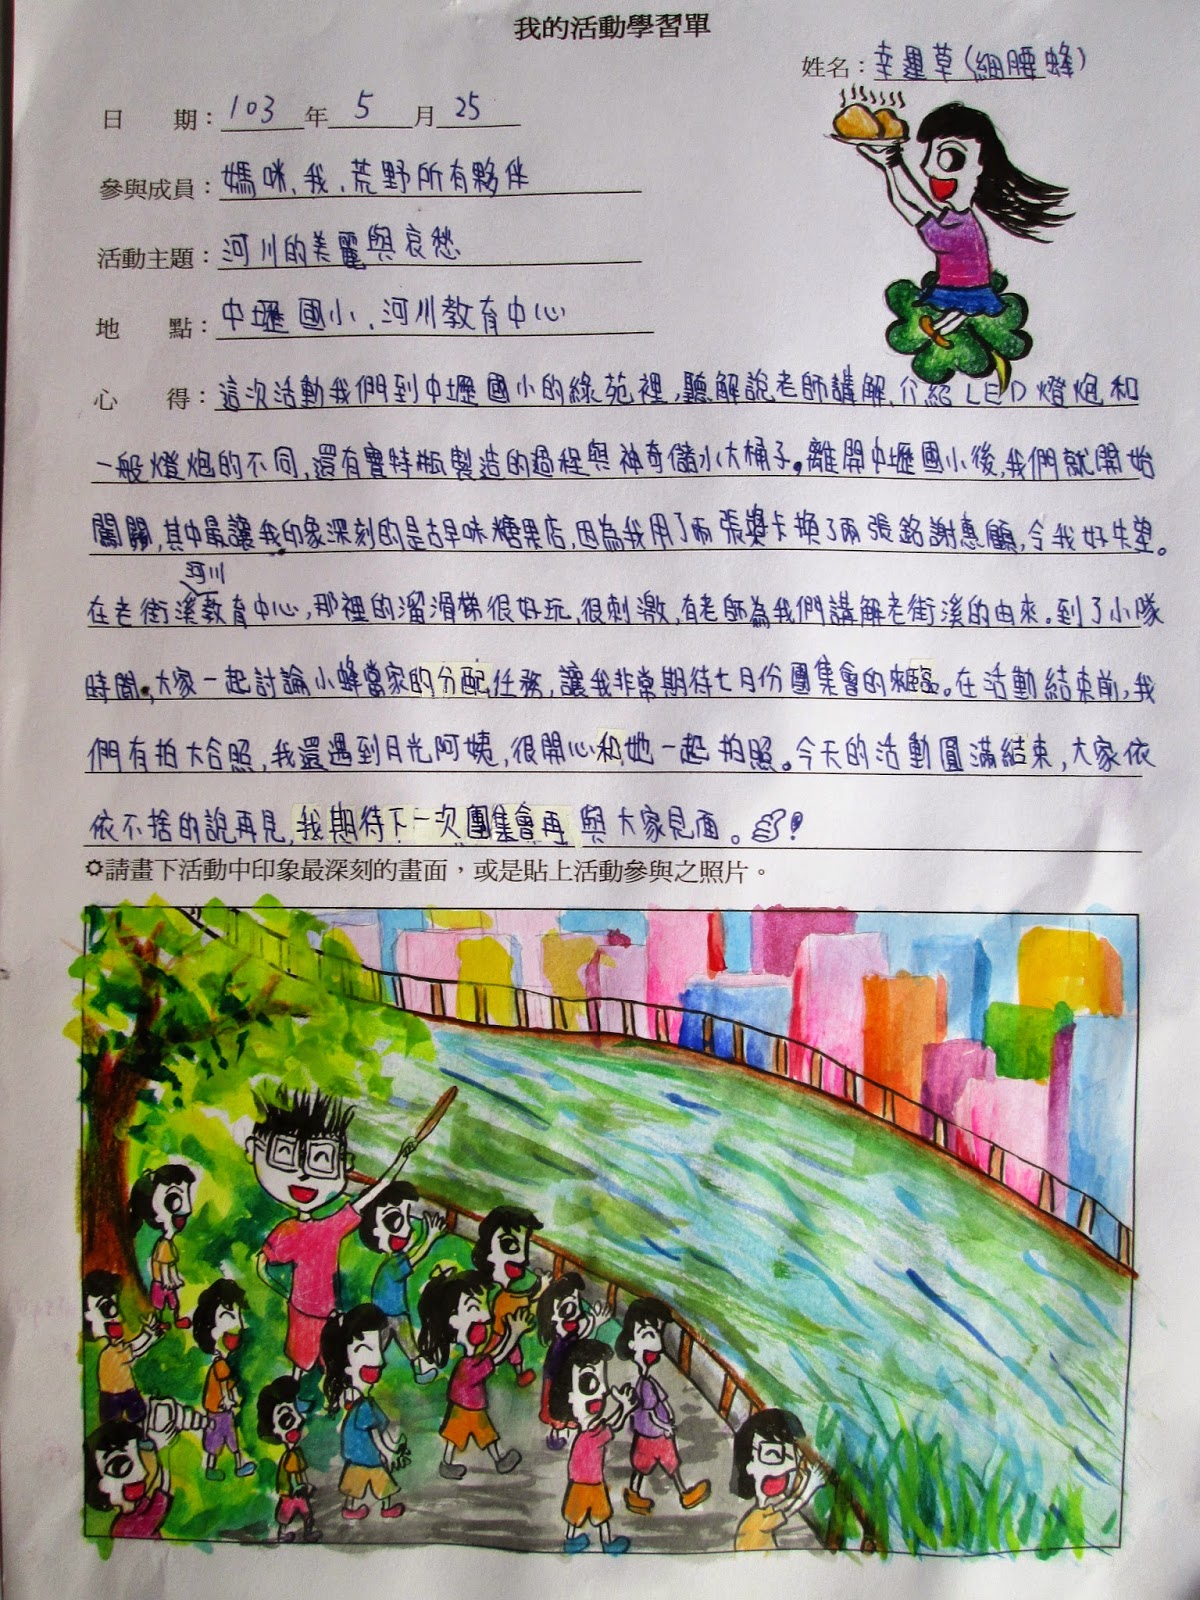 我的活動學習單
姓名：幸運草(細腰蜂)
日　期：103年5月25
參與成員：媽咪、我、荒野所有夥伴
活動主題：河川的美麗與哀愁
地　點：中壢國小、河川教育中心
心　得：這次活動我們到中壢國小的綠苑裡,聽解說老師講解、介紹LED燈炮和
一般燈炮的不同,還有寶特瓶製造的過程與神奇儲水大桶子。離開中壢國小後,我們就開始
闖關,其中最讓我印象深刻的是古早味糖果店,因為我用了兩張獎卡換了兩張銘謝惠顧,令我好失望。
河川
在老街溪教育中心,那裡的溜滑梯很好玩,很刺激,有老師為我們講解老街溪的由來。到了小隊
時間,大家一起討論小蜂當家的分配任務,讓我非常期待七月份團集會的來臨。在活動結束前,我
們有拍大合照,我還遇到月光阿姨,很開心和她一起拍照。今天的活動圓滿結束,大家依
依不捨的說再見,我期待下一次團集會再與大家見面。!
請畫下活動中印象最深刻的畫面，或是貼上活動參與之照片。